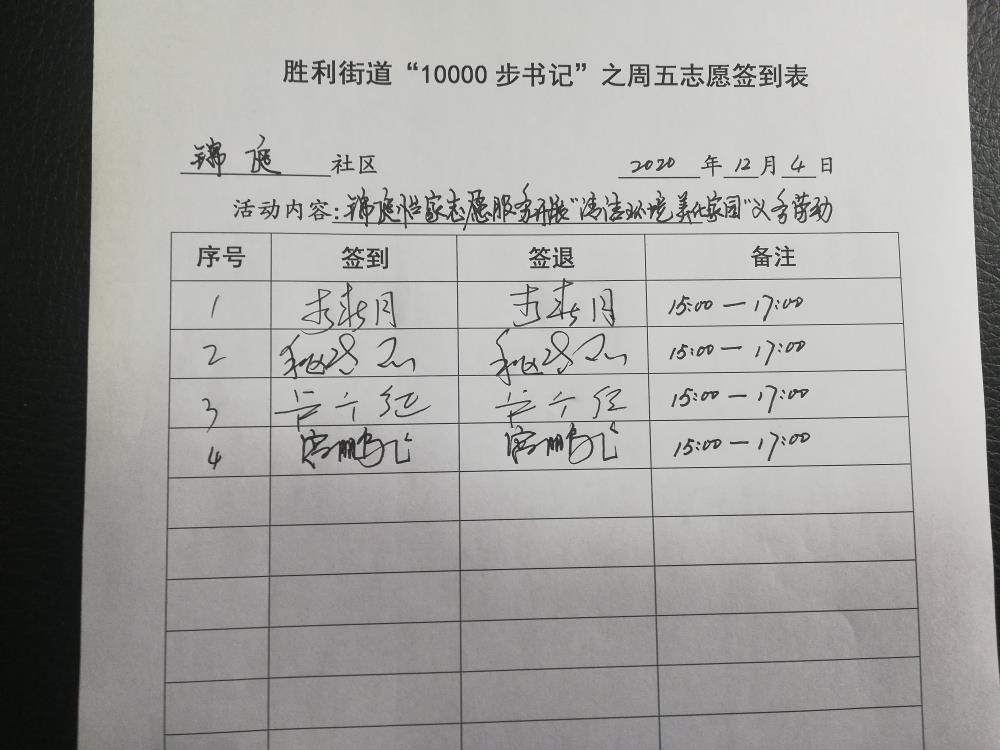 胜利街道“10000步书记”之周五志愿签到表
锦庭社区 2020年12月4日
活动内容:锦庭 家志愿服务开展“清洁环境美化家园”义务劳动
序号 签到 签退 备注
1 月 月 15:00—17:00
2 15:00—17:00
3 15:00—17:00
4 鹏飞 鹏飞 15:00—17:00